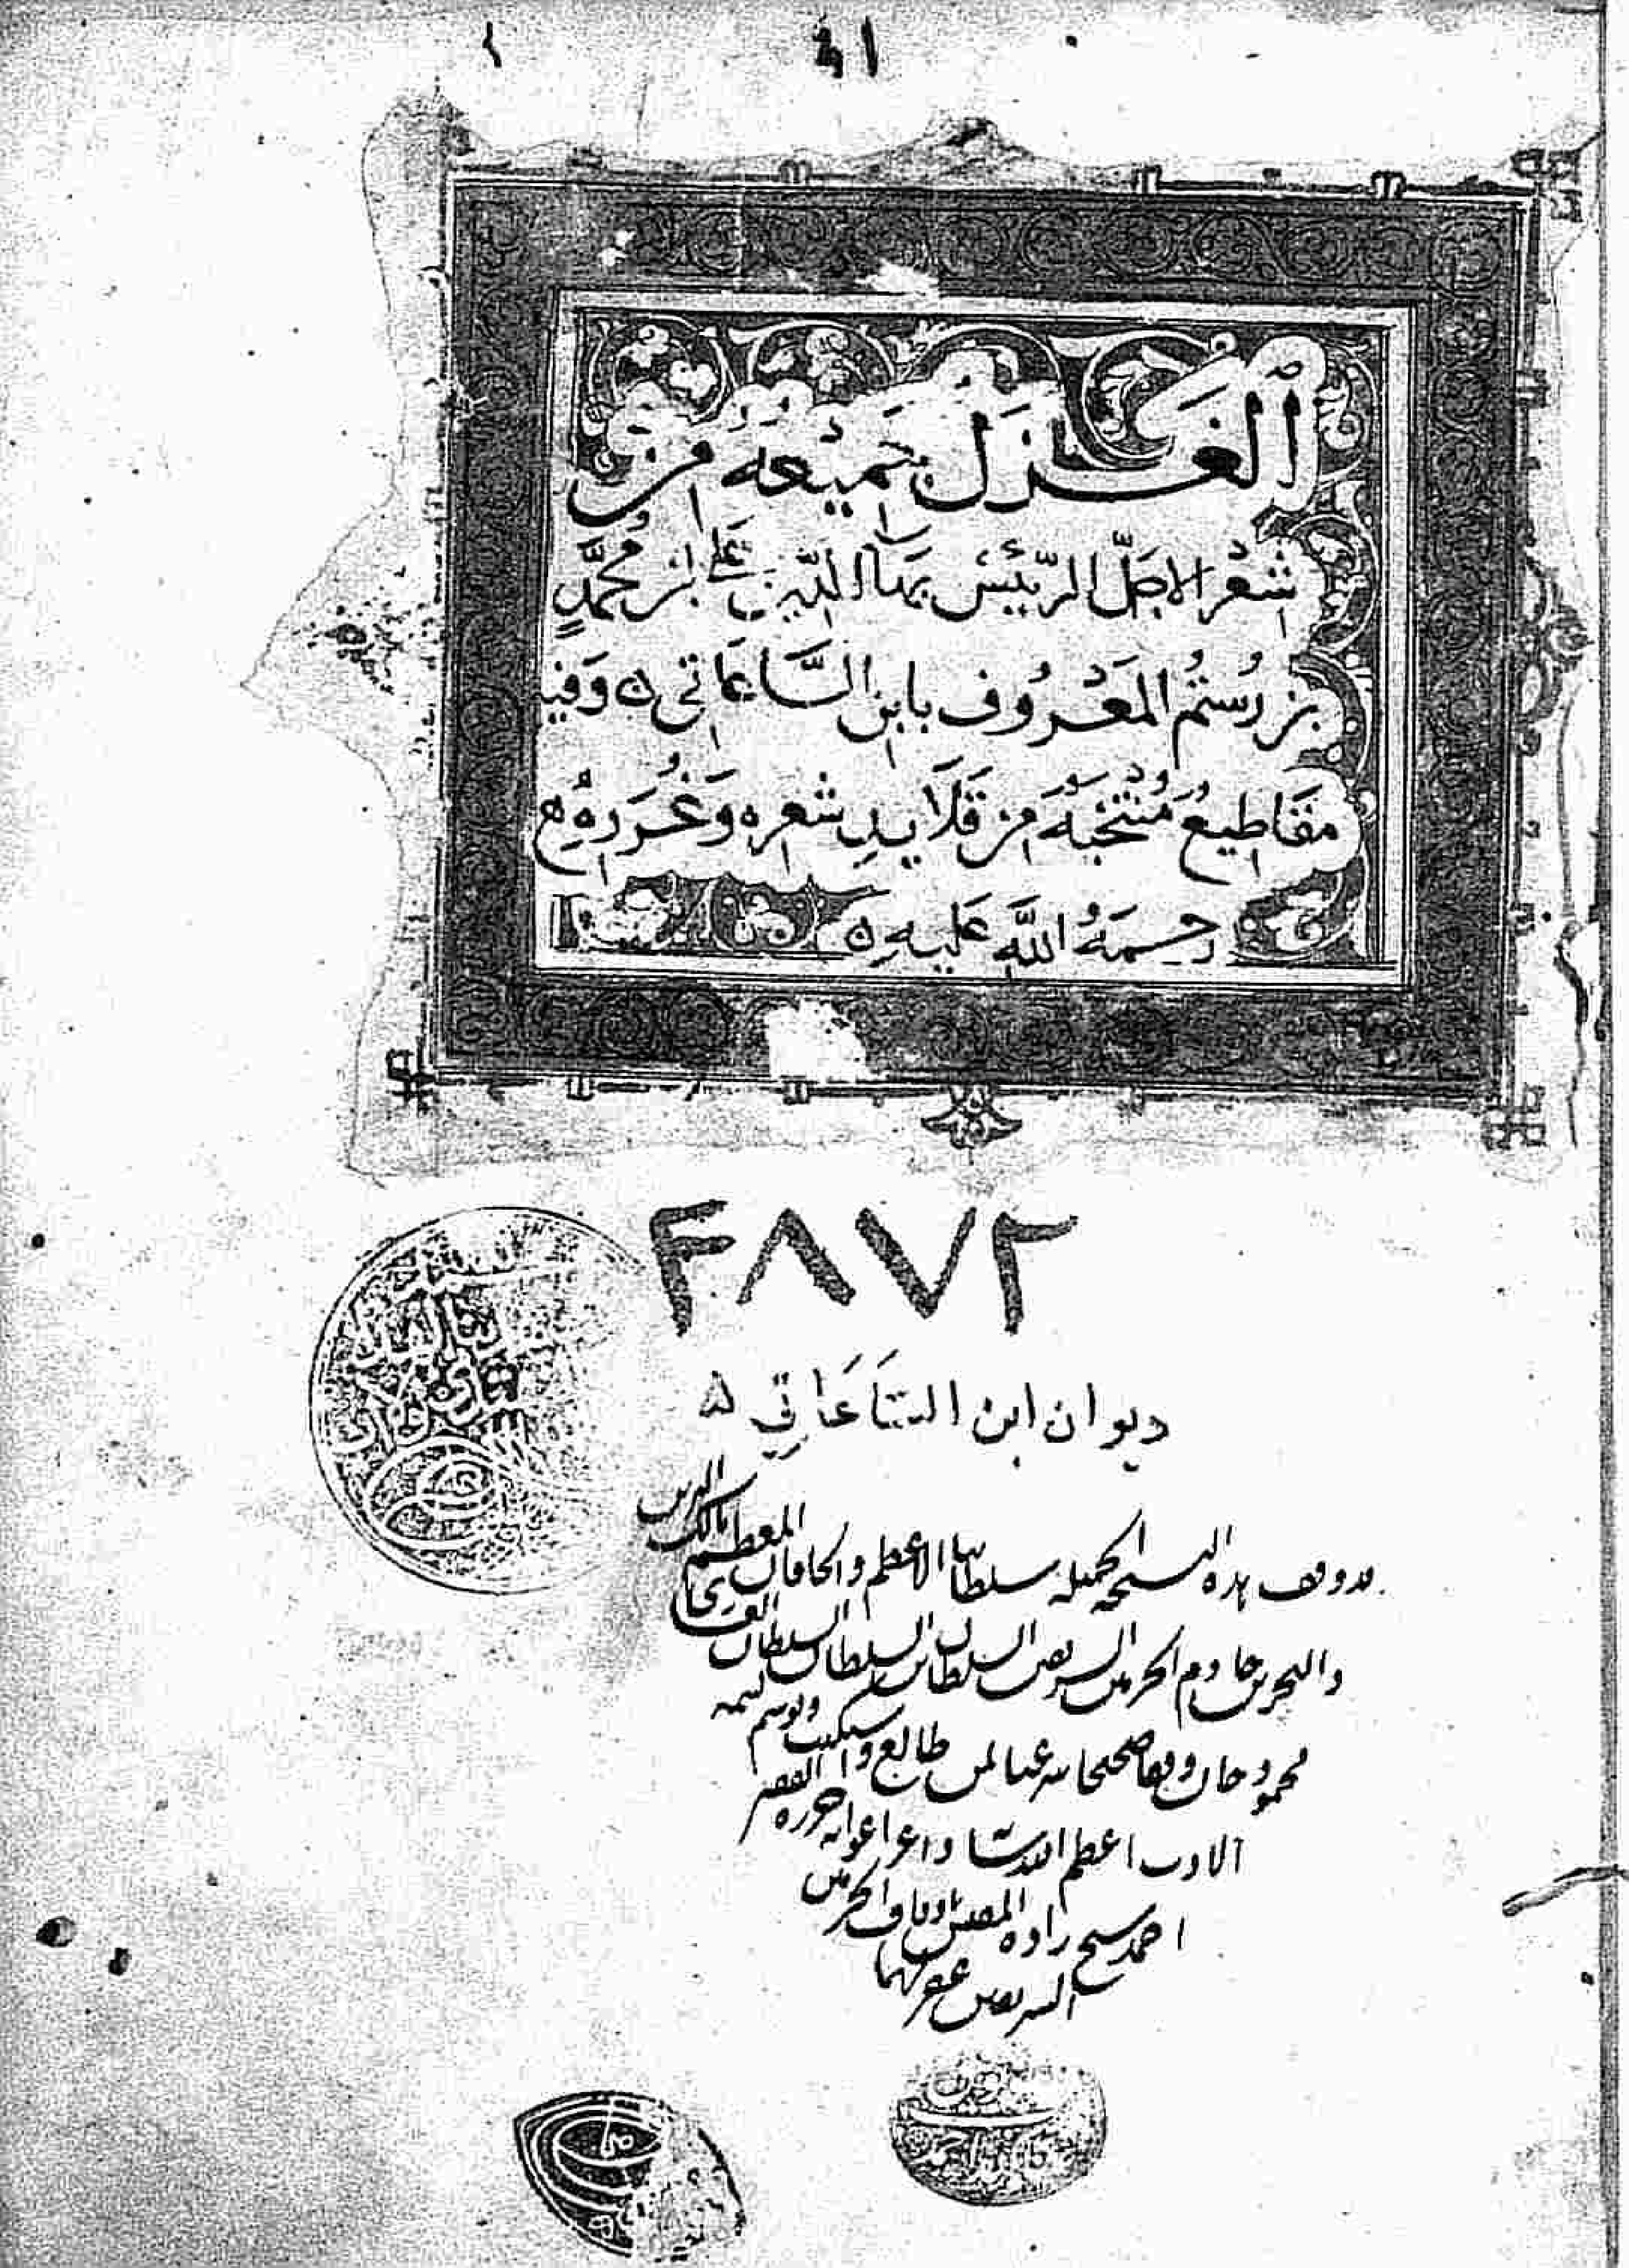 الغَزَلُ جَمِيْعُهُ مِنْ
شِعْرِ الاجَلِّ الرَّئيْس بَهَاء الدّين عَلِي بن مُحَمَّدٍ
بن رُسْتُم المَعْرُوف بابن السَّاعَاتي ٥ وَفيه
مَقَاطِيعُ مُنْتَخَبَةُ مِن قَلَايدِ شعره وَغُرَرِهِ
رحمَةُ اللَّهِ عَليهِ ٥
٢٨٧٢
ديوان ابن السَّاعَاتي ٥
قد وقف هذه النسخه الجميله سلطاننا الاعظم والخاقان المعظم مالك البرين
والبحرين خادم الحرمين الشريفين السلطان ابن السلطان السلطان الغازى
محمود خان وقفا صحيحا شرعيا لمن طالع
الادب اعظم الله شا واعز اعوانه حرره الفقير
احمد شيخ زاده المفتش باوقاف الحرمين
الشريفين غفر لهما